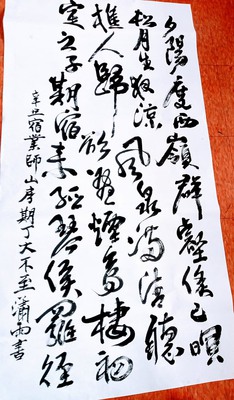 夕陽度西嶺群壑倏已暝
松月生夜涼風泉滿清聽
樵人歸欲盡煙鳥棲初
定之子期宿来孤琴候蘿徑
辛丑宿業師山房期丁大不至瀟雨書